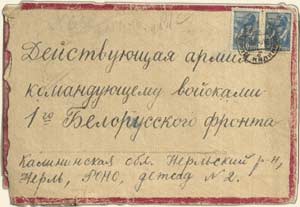 Действующая армия
командующему войсками
1го Белорусского фронта
Калининская обл. Нерльский р-н,
Нерль, РОНО, детсад №2.